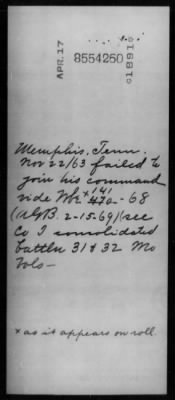 APR. 17
8554250
1891
Memphis, Tenn.
Nov 22/63 failed to
join his command
vide Wbr x 141
470 - 68
(A.G.B. 2-15-69) (see
Co I consolidated
battln 31 & 32 Mo
Vols -
x as it appears on roll.